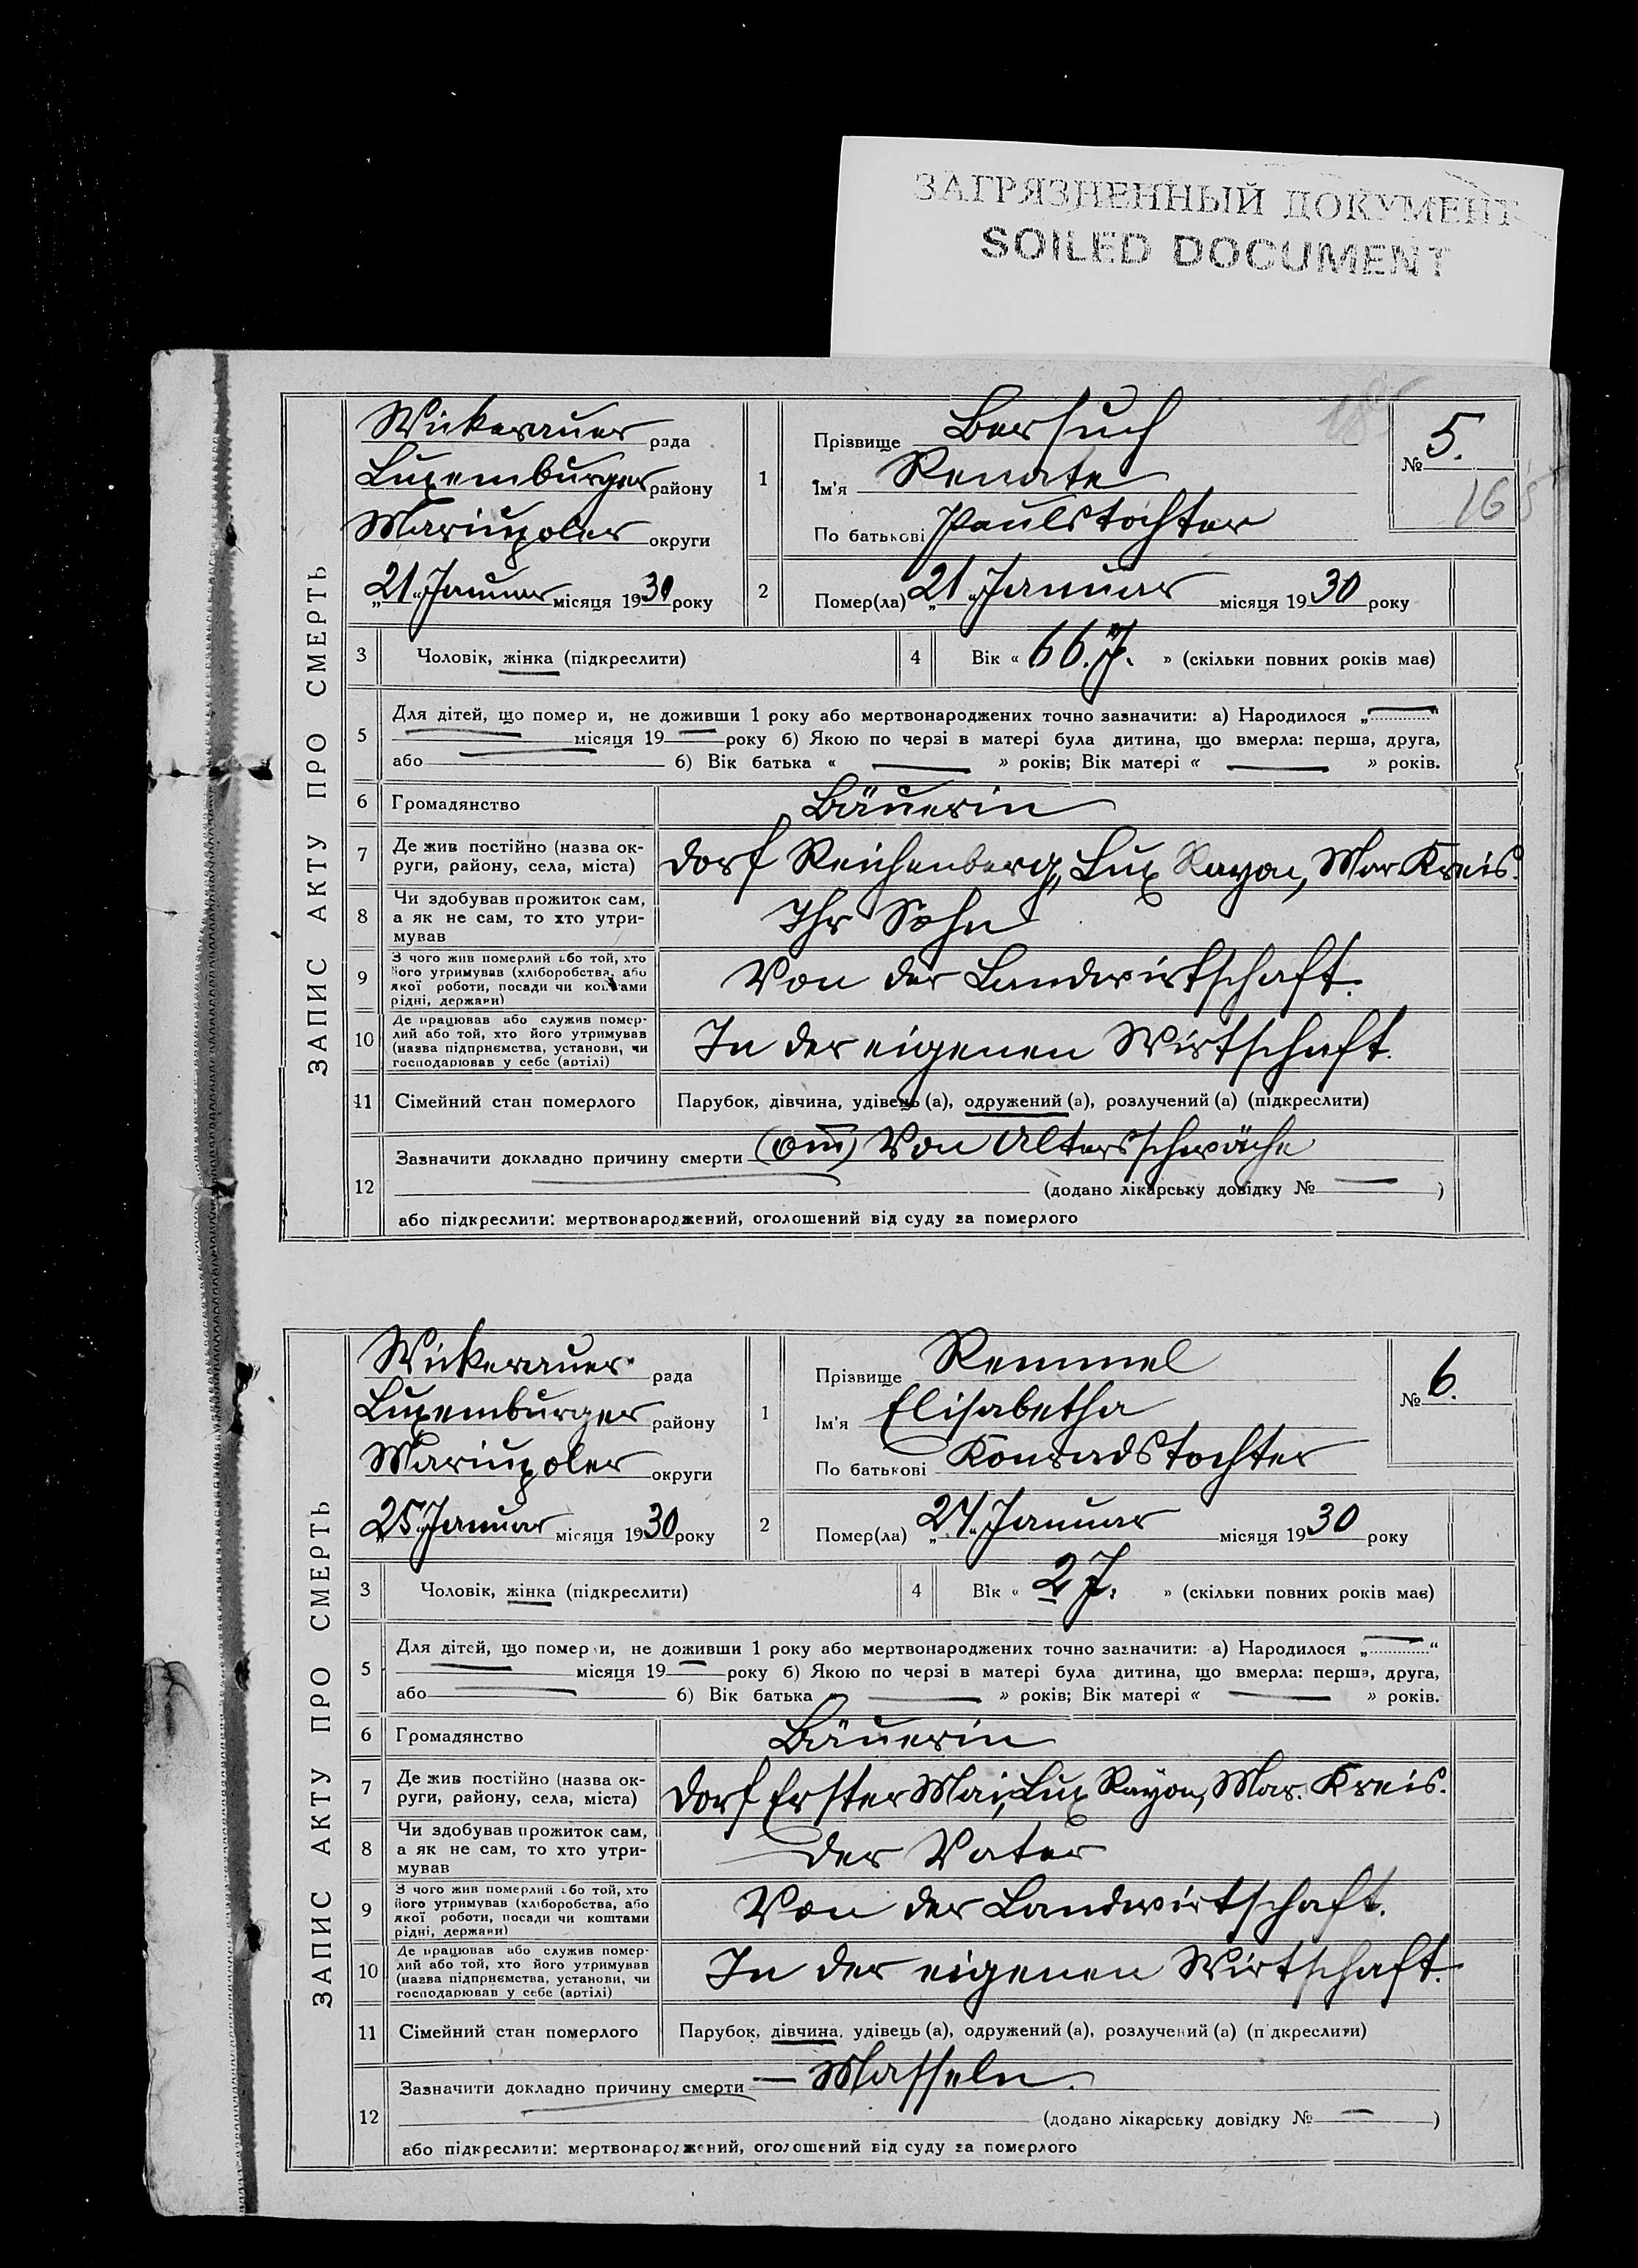 ЗАГРЯЗНЕННЫЙ ДОКУМЕНТ
SOILED DOCUMENT
ЗАПИС АКТУ ПРО СМЕРТЬ
Wickerauer рада
Luxemburger району
Mariupoler округи
„21.“ Januar місяця 1930 року
1 Прізвище Bersuch
Ім'я Renate
По батькові Paulstochter
№ 5.
165
2 Помер(ла) „21.“ Januar місяця 1930 року
3 Чоловік, жінка (підкреслити)
4 Вік « 66. J. » (скільки повних років має)
5 Для дітей, що помер и, не доживши 1 року або мертвонароджених точно зазначити: а) Народилося „ “
місяця 19 — року б) Якою по черзі в матері була дитина, що вмерла: перша, друга,
або — б) Вік батька « — » років; Вік матері « — » років.
6 Громадянство Bäuerin
7 Де жив постійно (назва ок-
руги, району, села, міста) Dorf Reichenberg, Lux Rayon, Mar Kreis.
8 Чи здобував прожиток сам,
а як не сам, то хто утри-
мував Ihr Sohn
9 З чого жив померлий або той, хто
його утримував (хліборобства, або
якої роботи, посади чи коштами
рідні, держави) Von der Landwirtschaft.
10 Де працював або служив помер-
лий або той, хто його утримував
(назва підприємства, установи, чи
господарював у себе (артілі) In der eigenen Wirtschaft.
11 Сімейний стан померлого Парубок, дівчина, удівець (а), одружений (а), розлучений (а) (підкреслити)
12 Зазначити докладно причину смерти Von Altersschwäche
(додано лікарську довідку № — )
або підкреслити: мертвонароджений, оголошений від суду за померлого
ЗАПИС АКТУ ПРО СМЕРТЬ
Wickerauer рада
Luxemburger району
Mariupoler округи
„25.“ Januar місяця 1930 року
1 Прізвище Remmel
Ім'я Elisabetha
По батькові Konradstochter
№ 6.
2 Помер(ла) „24.“ Januar місяця 1930 року
3 Чоловік, жінка (підкреслити)
4 Вік « 2 J. » (скільки повних років має)
5 Для дітей, що помер и, не доживши 1 року або мертвонароджених точно зазначити: а) Народилося „ “
місяця 19 — року б) Якою по черзі в матері була дитина, що вмерла: перша, друга,
або — б) Вік батька « — » років; Вік матері « — » років.
6 Громадянство Bäuerin
7 Де жив постійно (назва ок-
руги, району, села, міста) Dorf Erster Mai, Lux Rayon, Mar. Kreis.
8 Чи здобував прожиток сам,
а як не сам, то хто утри-
мував Der Vater
9 З чого жив померлий або той, хто
його утримував (хліборобства, або
якої роботи, посади чи коштами
рідні, держави) Von der Landwirtschaft.
10 Де працював або служив помер-
лий або той, хто його утримував
(назва підприємства, установи, чи
господарював у себе (артілі) In der eigenen Wirtschaft.
11 Сімейний стан померлого Парубок, дівчина, удівець (а), одружений (а), розлучений (а) (підкреслити)
12 Зазначити докладно причину смерти — Masseln.
(додано лікарську довідку № — )
або підкреслити: мертвонароджений, оголошений від суду за померлого